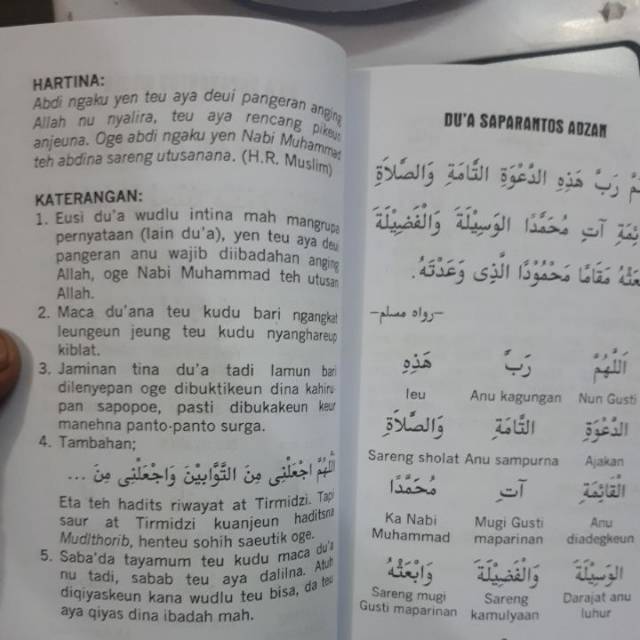 HARTINA:
Abdi ngaku yen teu aya deui pangeran anging
Allah nu nyalira, teu aya rencang pikeun
anjeuna. Oge abdi ngaku yen Nabi Muhammad
teh abdina sareng utusanana. (H.R. Muslim)
KATERANGAN:
1. Eusi du'a wudlu intina mah mangrupa
pernyataan (lain du'a), yen teu aya deui
pangeran anu wajib diibadahan anging
Allah, oge Nabi Muhammad teh utusan
Allah.
2. Maca du'ana teu kudu bari ngangkat
leungeun jeung teu kudu nyanghareup
kiblat.
3. Jaminan tina du'a tadi lamun bari
dilenyepan oge dibuktikeun dina kahiru-
pan sapopoe, pasti dibukakeun keur
manehna panto-panto surga.
4. Tambahan;
اَللّٰهُمَّ اجْعَلْنِي مِنَ التَّوَّابِيْنَ وَاجْعَلْنِي مِنَ ...
Eta teh hadits riwayat at Tirmidzi. Tapi
saur at Tirmidzi kuanjeun haditsna
Mudlthorib, henteu sohih saeutik oge.
5. Saba'da tayamum teu kudu maca du'a
nu tadi, sabab teu aya dalilna. Atuh
diqiyaskeun kana wudlu teu bisa, da teu
aya qiyas dina ibadah mah.
DU'A SAPARANTOS ADZAN
رَبَّ هٰذِهِ الدَّعْوَةِ التَّامَّةِ وَالصَّلَاةِ
آتِ مُحَمَّدًا الْوَسِيْلَةَ وَالْفَضِيْلَةَ
مَقَامًا مَحْمُوْدًا الَّذِى وَعَدْتَهُ.
-رواه مسلم-
اَللّٰهُمَّ رَبَّ هٰذِهِ
Ieu Anu kagungan Nun Gusti
الدَّعْوَةِ التَّامَّةِ وَالصَّلَاةِ
Sareng sholat Anu sampurna Ajakan
الْقَائِمَةِ آتِ مُحَمَّدًا
Ka Nabi Muhammad Mugi Gusti maparinan Anu diadegkeun
الْوَسِيْلَةَ وَالْفَضِيْلَةَ وَابْعَثْهُ
Sareng mugi Gusti maparinan Sareng kamulyaan Darajat anu luhur